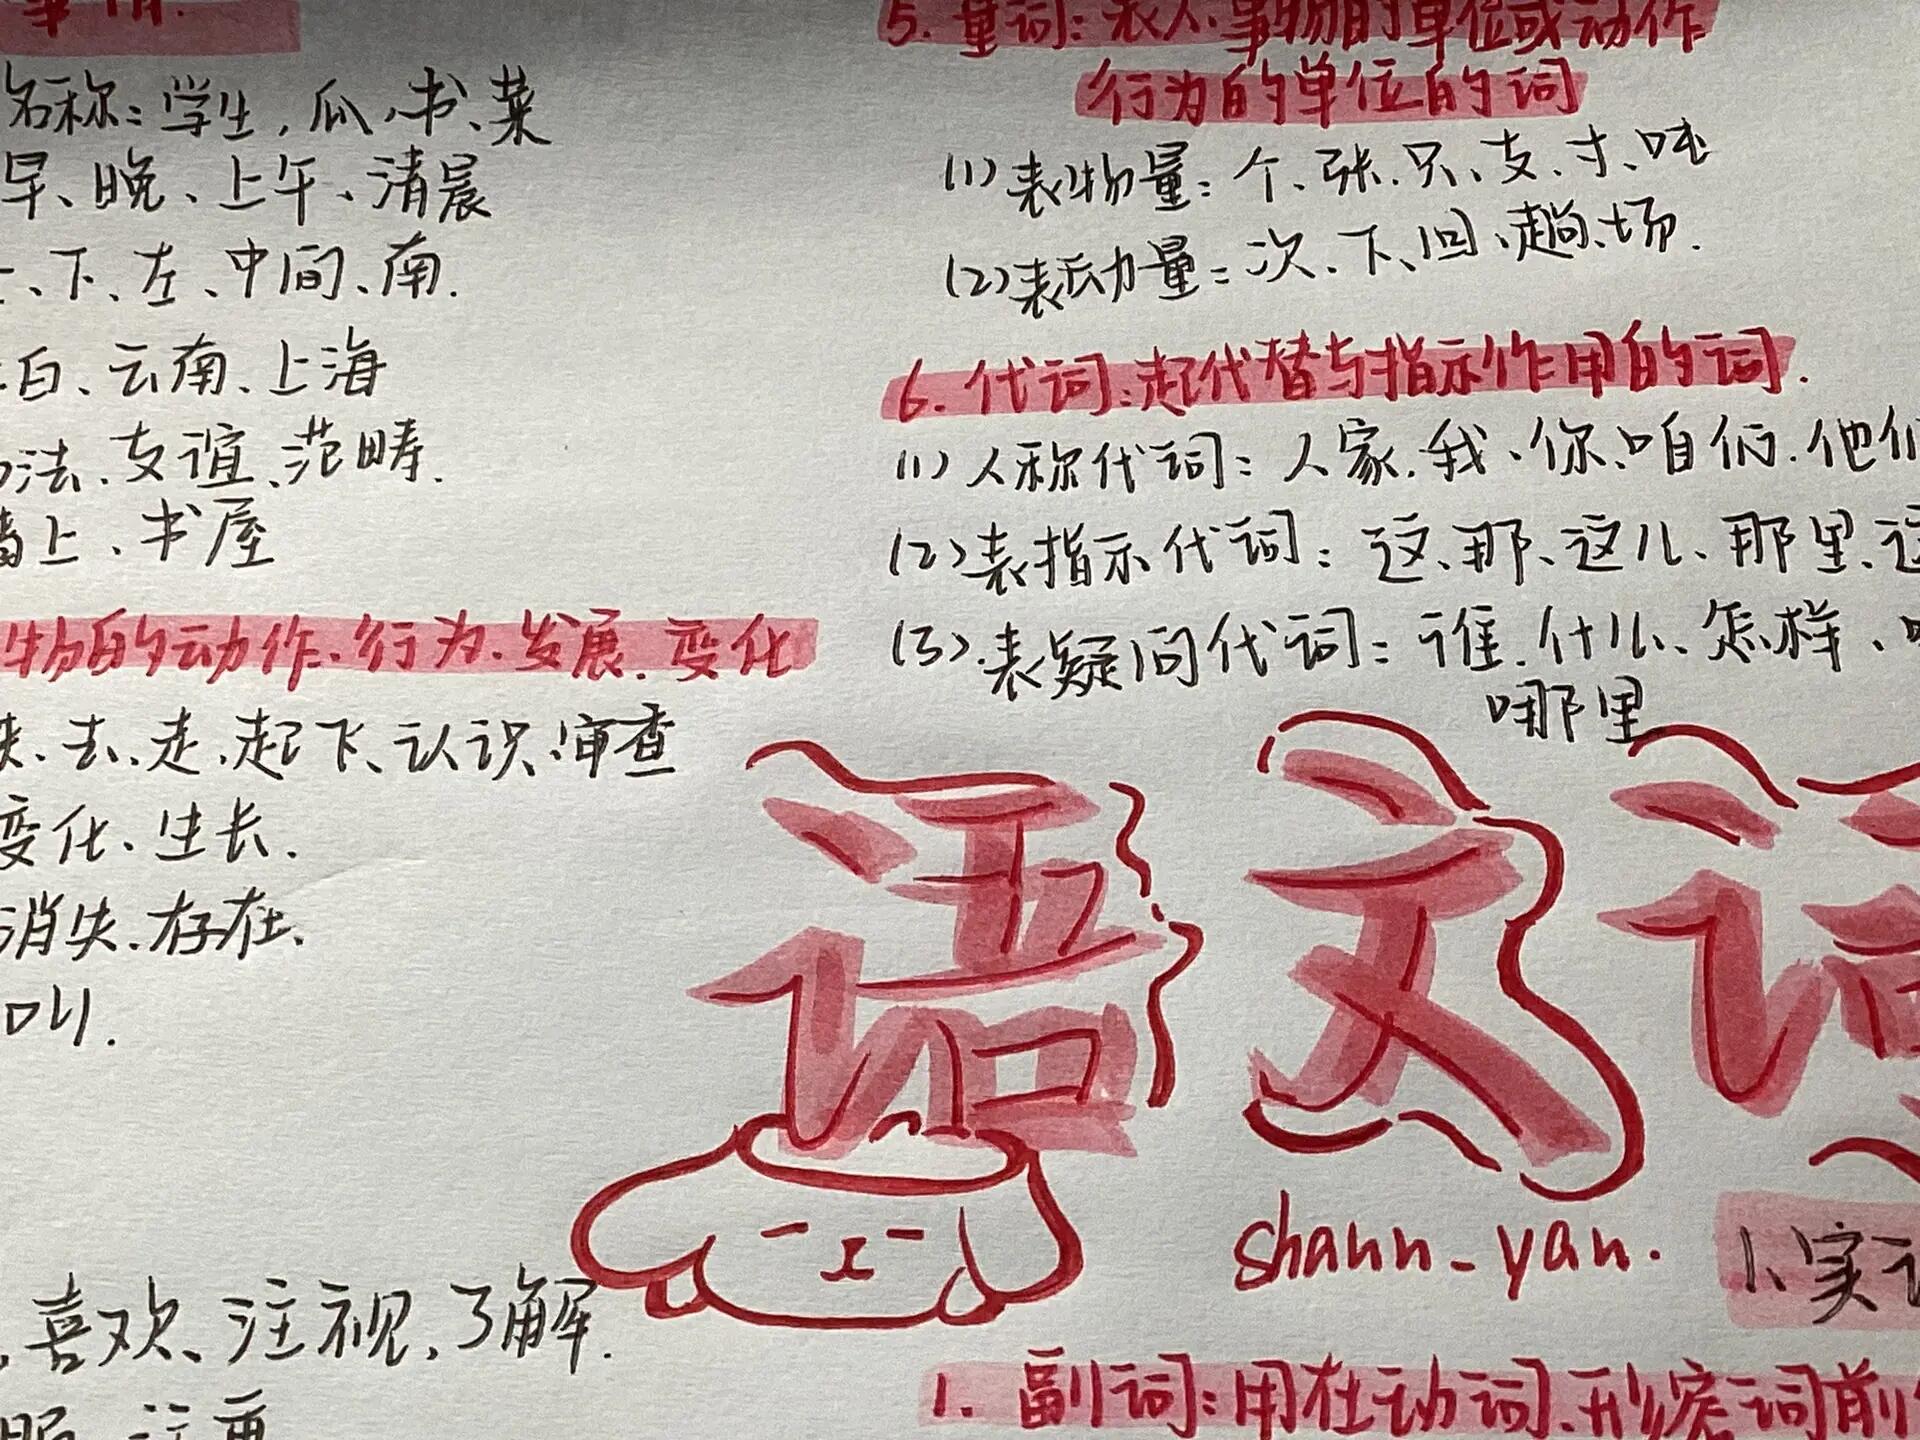 事情.
名称：学生,瓜、书、菜
早、晚、上午、清晨
、下、左、中间、南.
白、云南、上海
法、友谊、范畴.
墙上、书屋
物的动作、行为、发展、变化
去、走、起飞、认识、审查
变化、生长.
消失、存在、
叫.
喜欢、注视、了解.
注重
5. 量词：表人、事物的单位或动作
行为的单位的词
(1)表物量：个、张、只、支、寸、吨
(2)表动量：次、下、回、趟、场.
6. 代词：起代替与指示作用的词.
(1)人称代词：人家、我、你、咱们、他们
(2)表指示代词：这、那、这儿、那里、这
(3)表疑问代词：谁、什么、怎样、
哪里
语文词
shann-yan.
1、实词
1. 副词：用在动词、形容词前